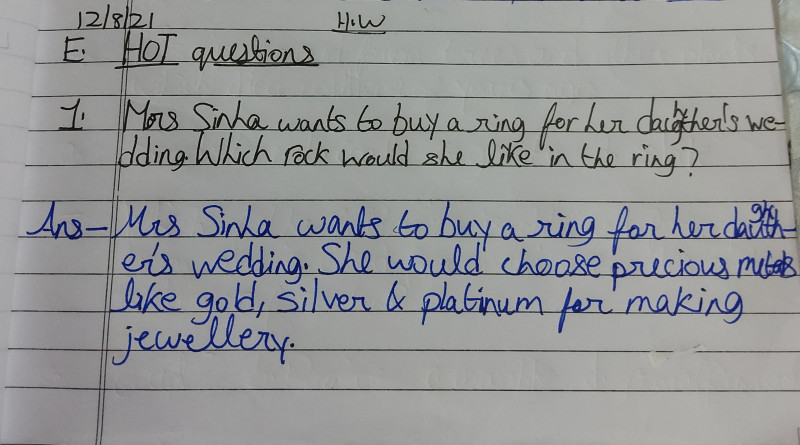 12/8/21 H.W
E. HOT questions
1. Mrs Sinha wants to buy a ring for her daughther's we-
dding. Which rock would she like in the ring?
Ans- Mrs Sinha wants to buy a ring for her daughth-
er's wedding. She would choose precious metals
like gold, silver & platinum for making
jewellery.